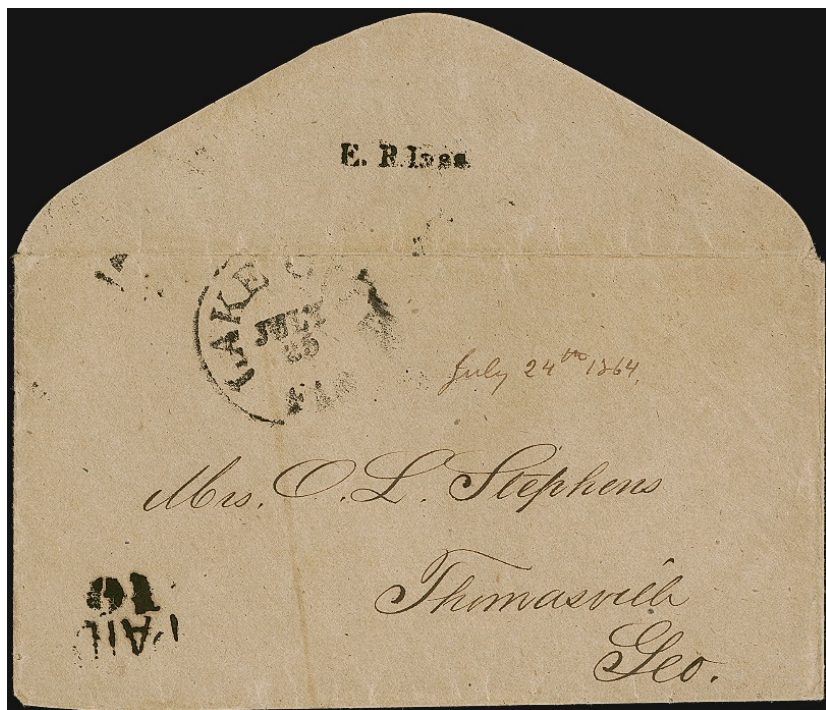 E. R. Ives
LAKE C
JULY
25
FLA
July 24th 1864
Mrs. O. L. Stephens
Thomasville
Geo.
PAID
10